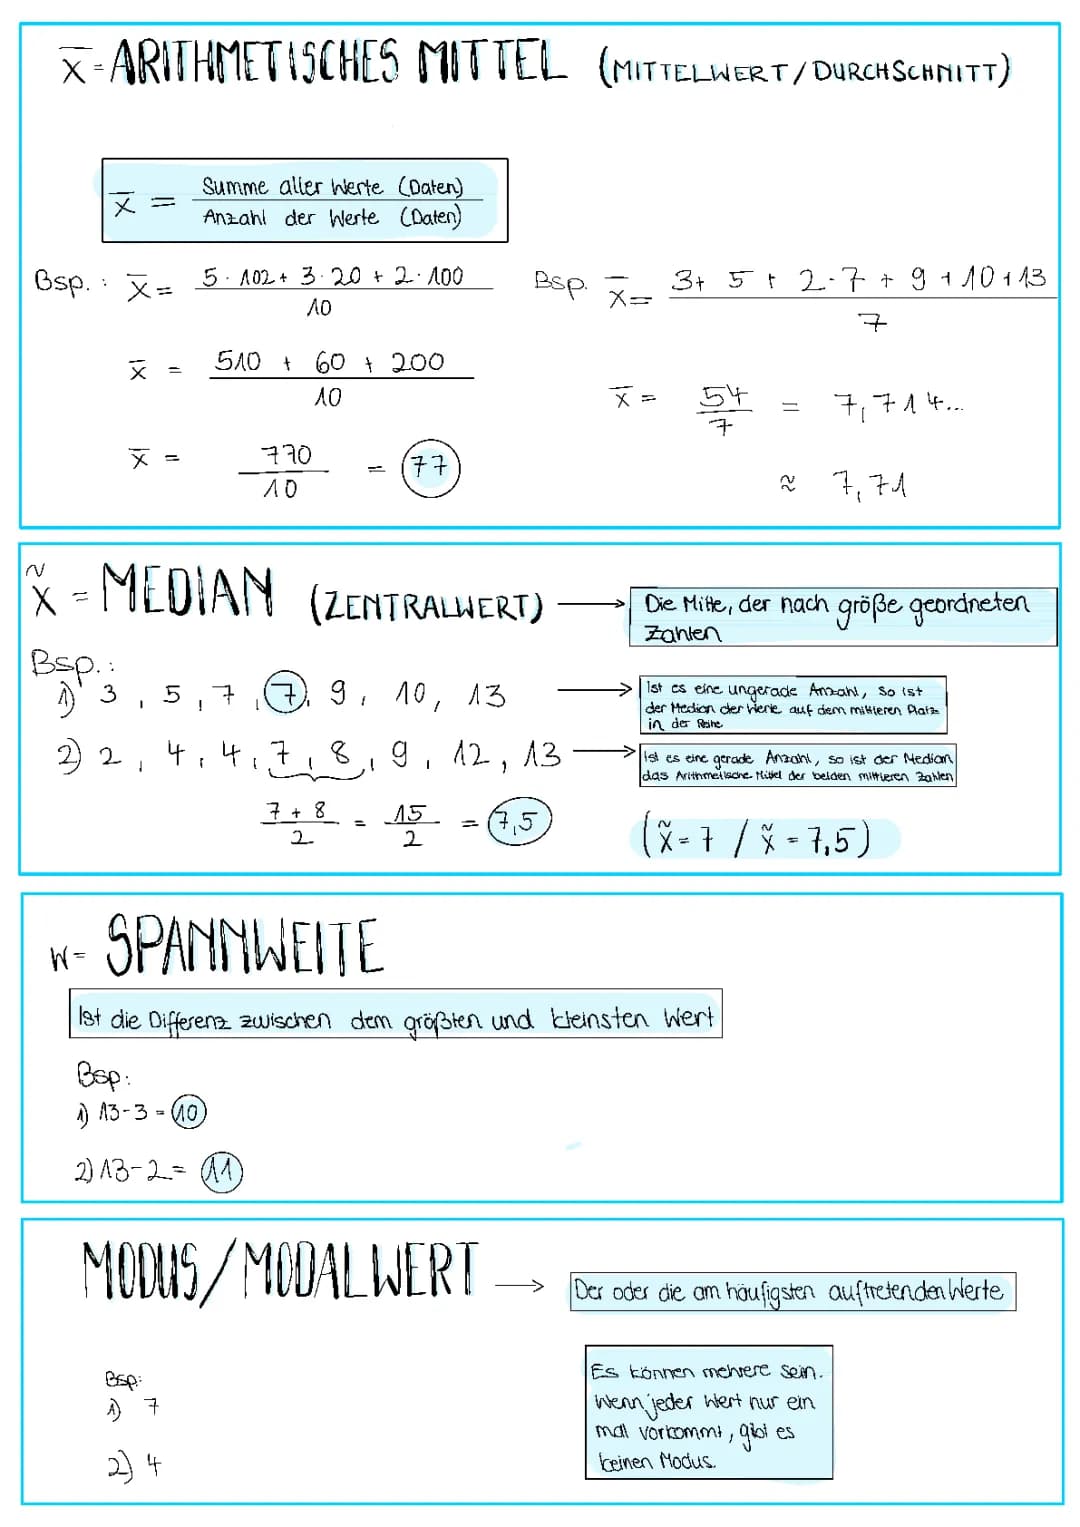 x̅ = ARITHMETISCHES MITTEL (MITTELWERT/DURCHSCHNITT)
x̅ = Summe aller Werte (Daten)
Anzahl der Werte (Daten)
Bsp.: x̅ = 5·102 + 3·20 + 2·100
10
x̅ = 510 + 60 + 200
10
x̅ = 770 = 77
10
Bsp. x̅ = 3 + 5 + 2·7 + 9 + 10 + 13
7
x̅ = 54 = 7,714...
7
≈ 7,71
x̃ = MEDIAN (ZENTRALWERT) → Die Mitte, der nach größe geordneten
Zahlen
Bsp.:
1) 3, 5, 7, 7, 9, 10, 13 → Ist es eine ungerade Anzahl, so ist
der Median der Werte auf dem mittleren Platz
in der Reihe
2) 2, 4, 4, 7, 8, 9, 12, 13 → Ist es eine gerade Anzahl, so ist der Median
das Arithmetische Mittel der beiden mittleren Zahlen
7 + 8 = 15 = 7,5
2 2
(x̃ = 7 / x̃ = 7,5)
W = SPANNWEITE
Ist die Differenz zwischen dem größten und kleinsten Wert
Bsp:
1) 13-3 = 10
2) 13-2 = 11
MODUS/MODALWERT → Der oder die am häufigsten auftretenden Werte
Es können mehrere sein.
Wenn jeder Wert nur ein
mal vorkommt, gibt es
keinen Modus.
Bsp:
1) 7
2) 4